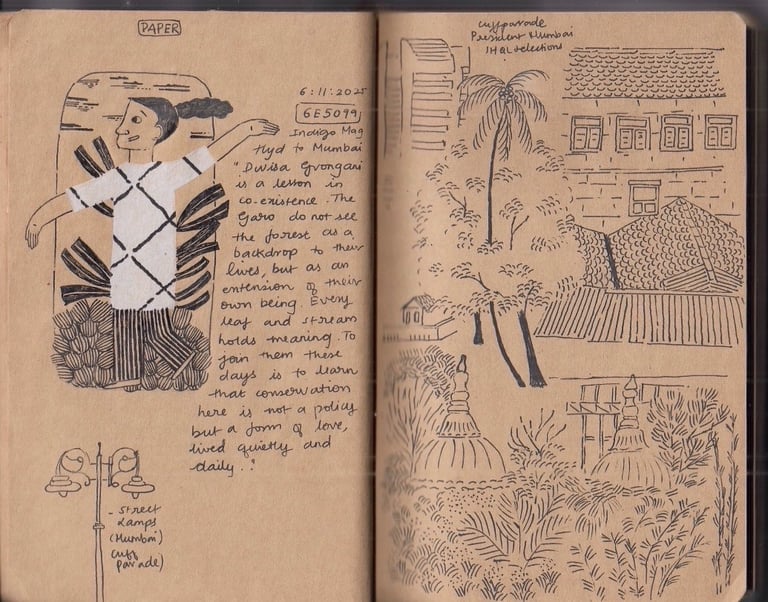 PAPER
6:11:2025
6E5099
Indigo Mag
Hyd to Mumbai
"Dwisa Grongari
is a lesson in
co-existence. The
Garo do not see
the forest as a
backdrop to their
lives, but as an
extension of their
own being. Every
leaf and stream
holds meaning. To
join them these
days is to learn
that conservation
here is not a policy
but a form of love,
lived quietly and
daily."
- Street
Lamps
(Mumbai)
Cuff
Parade)
Cuffparade
President Mumbai
IHCL selections